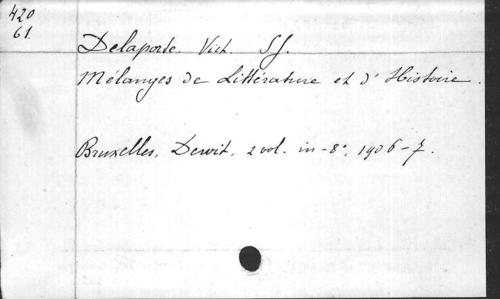 420
61
Delaporte. Vict. SJ.
Mélanges de Littérature et d'Histoire.
Bruxelles, Dewit, 2 vol. in-8°, 1906-7.